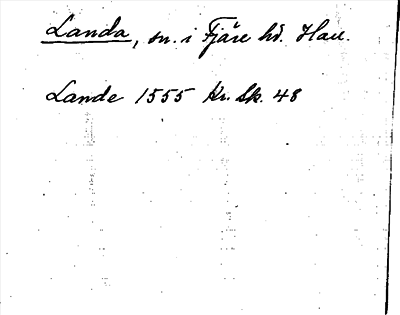 Landa, sn. i Fjäre hd. Hall.
Lande 1555 Kr. Sk. 48